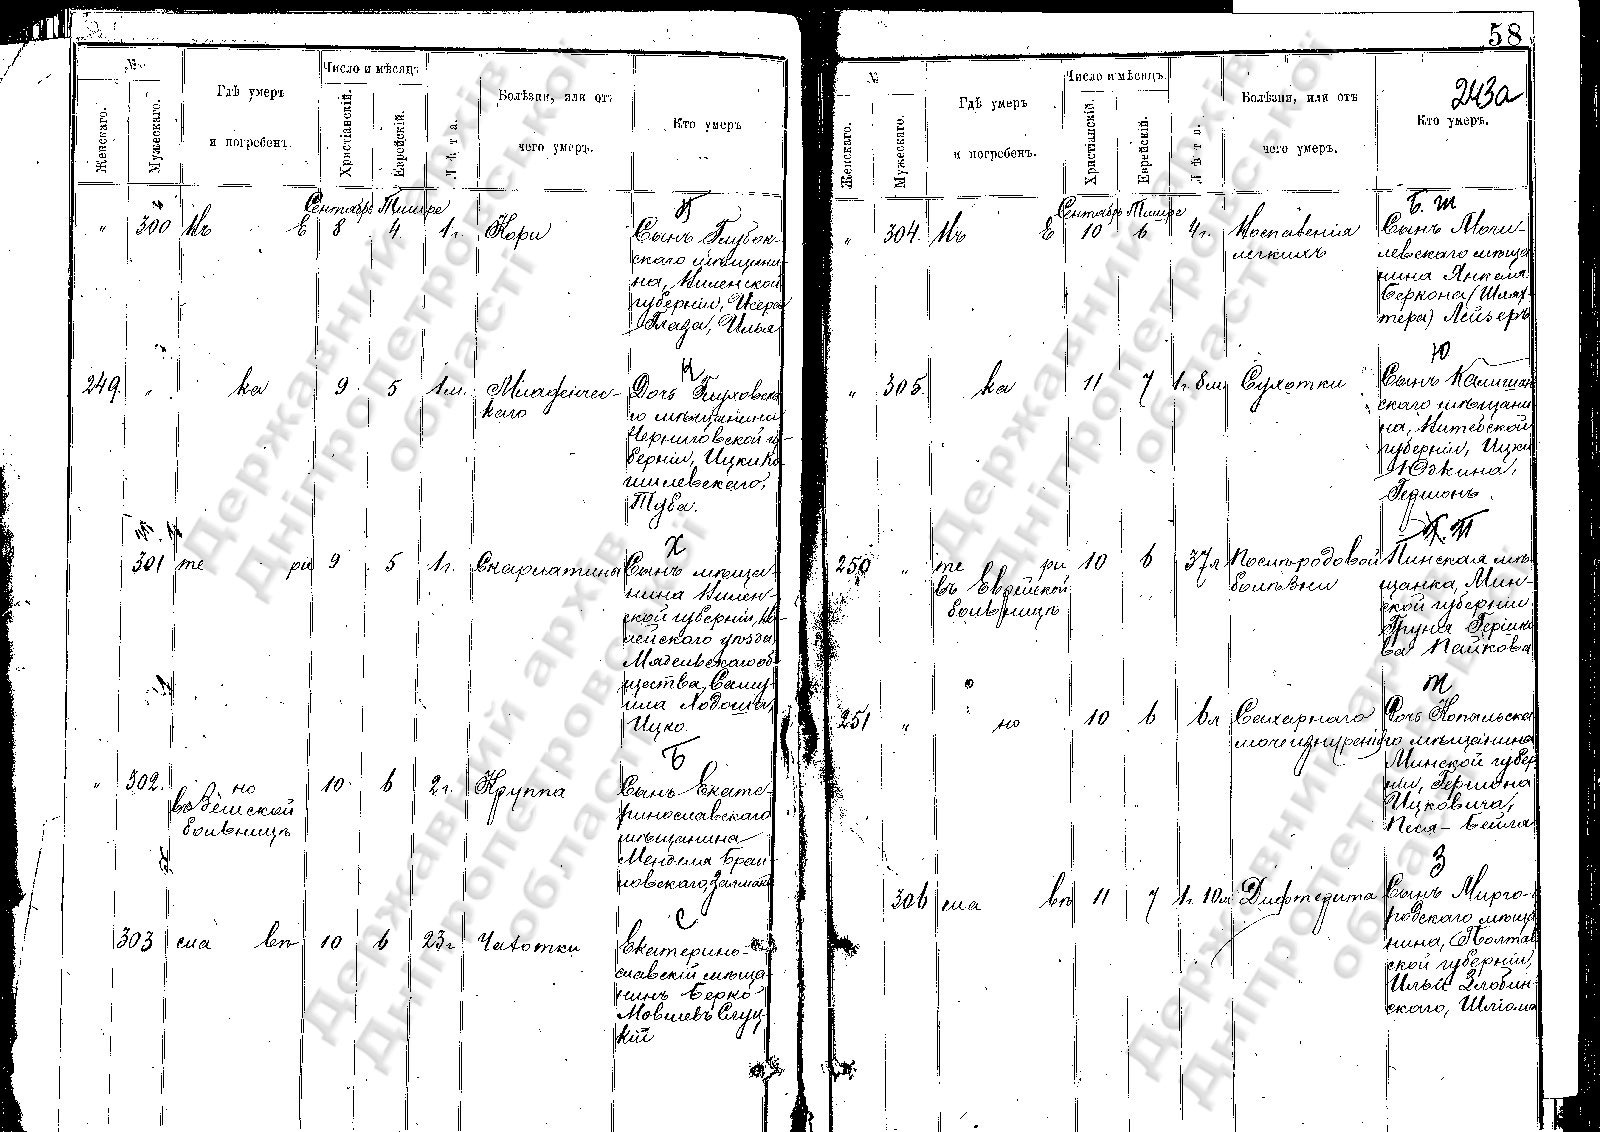 58
243а
№
Женскаго.
Мужескаго.
Гдѣ умеръ
и погребенъ.
Число и мѣсяцъ
Христіанскій.
Еврейскій.
Лѣта.
Болѣзни, или отъ
чего умеръ.
Кто умеръ
Сентябрь Тишре
" 300 Въ Е 8 4 1 г. Кори
Сынъ Глубок-
скаго мѣщани-
на, Виленской
губерніи,
Глаза, Илья
249. " ка 9 5 1 м.
каго
Дочь
го мѣщанина
Черниговской гу-
берніи, Ицки Ко-
шилевскаго,
Туба.
301 те ри 9 5 1 г. Скарлатины
Х
Сынъ мѣща-
нина Вилен-
ской губерніи, Ви-
лейскаго уѣзда,
Мядельскаго об-
щества, Саму-
ила Ходоша,
Ицко.
" 302. но 10 6 2 г. Круппа
больницѣ
Б
Сынъ Екате-
ринославскаго
мѣщанина
Менделя Браи-
ловскаго, Залманъ
303 сла вѣ 10 6 23 г. Чахотки
С
Екатерино-
славскій мѣща-
нинъ Берко
Мовшевъ Слуц-
кій
№
Женскаго.
Мужескаго.
Гдѣ умеръ
и погребенъ.
Число и мѣсяцъ.
Христіанскій.
Еврейскій.
Лѣта.
Болѣзни, или отъ
чего умеръ.
Кто умеръ.
Сентябрь Тишре
" 304. Въ Е 10 6 4 г. Воспаленія
легкихъ
Б. Ш
Сынъ Моги-
левскаго мѣща-
нина Янкеля
Беркона (Шлях-
тера) Лейзеръ
" 305. ка 11 7 1 г. 8 м. Сухотки
Ю
Сынъ
скаго мѣщани-
на, Витебской
губерніи, Ицки
Юдкина,
Гершонъ.
250 " те ри 10 6 37 л Послѣродовой
въ Еврейской
больницѣ
болѣзни
Пинская мѣ-
щанка, Мин-
ской губерніи
Груня Гершко-
ва Пайкова
251 " но 10 6 6 л Сахарнаго
мочеизнуренія
Дочь Копыльска-
го мѣщанина
Минской губер-
ніи, Гершона
Ицковича,
Песя-Бейла
306 сла вѣ 11 7 1 г. 10 м Дифтерита
З
Сынъ Мирго-
родскаго мѣща-
нина, Полтав-
ской губерніи,
Ильи Злобин-
скаго, Шліома
Державний архів
Дніпропетровської
області